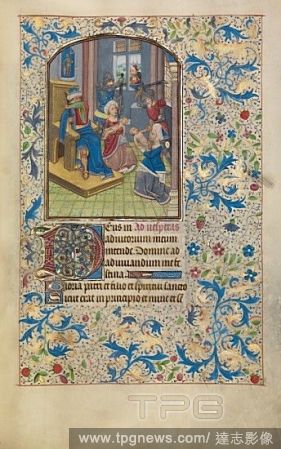 Eus in ad vesperas
adiutorium meum
intende. Domine ad
adiuuandum me fe
stina.
Gloria patri et filio et spiritui sancto
sicut erat in principio et nunc et s
TPG
www.tpgnews.com/ 達志影像